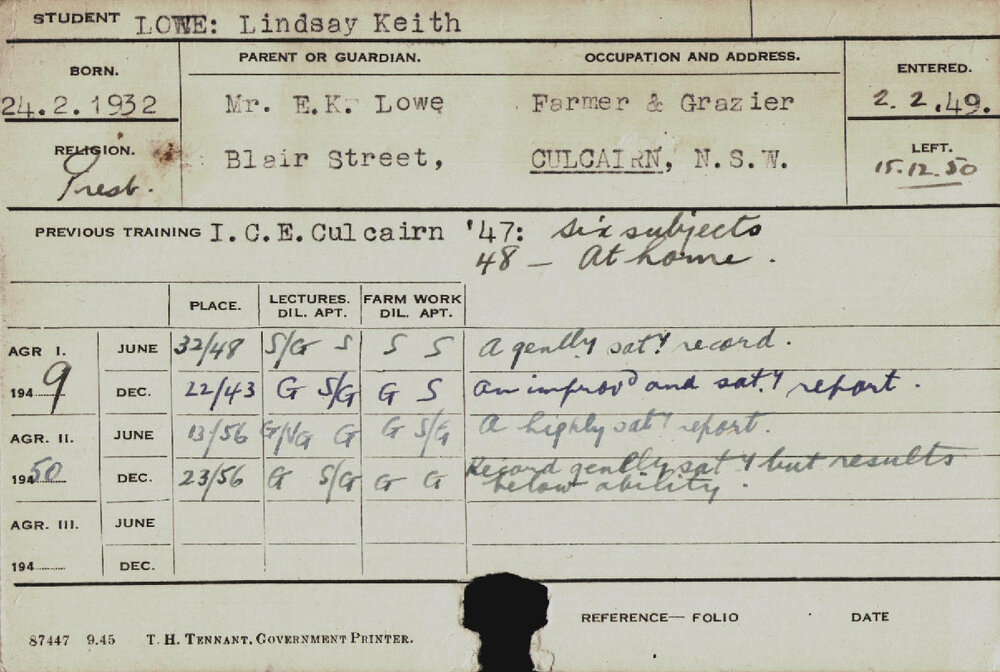 STUDENT LOWE: Lindsay Keith
BORN. PARENT OR GUARDIAN. OCCUPATION AND ADDRESS. ENTERED.
24.2.1932 Mr. E.K. Lowe Farmer & Grazier 2.2.49.
RELIGION. Blair Street, CULCAIRN, N.S.W. LEFT.
Presb. 15.12.50
PREVIOUS TRAINING I.C.E.Culcairn '47: six subjects
48 — At home.
PLACE. LECTURES. FARM WORK
DIL. APT. DIL. APT.
AGR I. JUNE 32/48 S/G S S S A genlly saty record.
1949 DEC. 22/43 G S/G G S An improvd and saty report.
AGR. II. JUNE 13/56 G/VG G G S/G A highly saty report.
1950 DEC. 23/56 G S/G G G Record genlly saty but results
below ability.
AGR. III. JUNE
194 DEC.
REFERENCE— FOLIO DATE
87447 9.45 T. H. TENNANT, GOVERNMENT PRINTER.